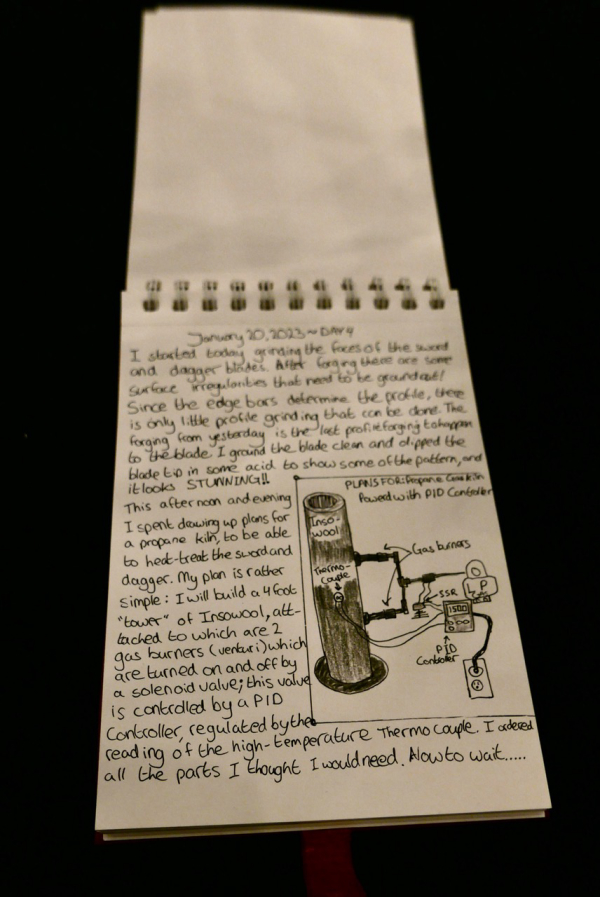 January 20, 2023 ~ DAY 4
I started today grinding the faces of the sword
and dagger blades. After forging there are some
surface irregularities that need to be ground out!
Since the edge bars determine the profile, there
is only little profile grinding that can be done. The
forging from yesterday is the last profile forging to happen
to the blade. I ground the blade clean and dipped the
blade tip in some acid to show some of the pattern, and
it looks STUNNING!!
This afternoon and evening
I spent drawing up plans for
a propane kiln, to be able
to heat-treat the sword and
dagger. My plan is rather
simple: I will build a 4 foot
"tower" of Insowool, att-
tached to which are 2
gas burners (venturi) which
are turned on and off by
a solenoid valve; this valve
is controlled by a PID
Controller, regulated by the
reading of the high-temperature Thermo Couple. I ordered
all the parts I thought I would need. Now to wait.....
PLANS FOR: Propane Gas Kiln
Powered with PID Controller
Inso-
wool
Thermo-
Couple
Gas burners
SSR
LP
1500
PID
Controller